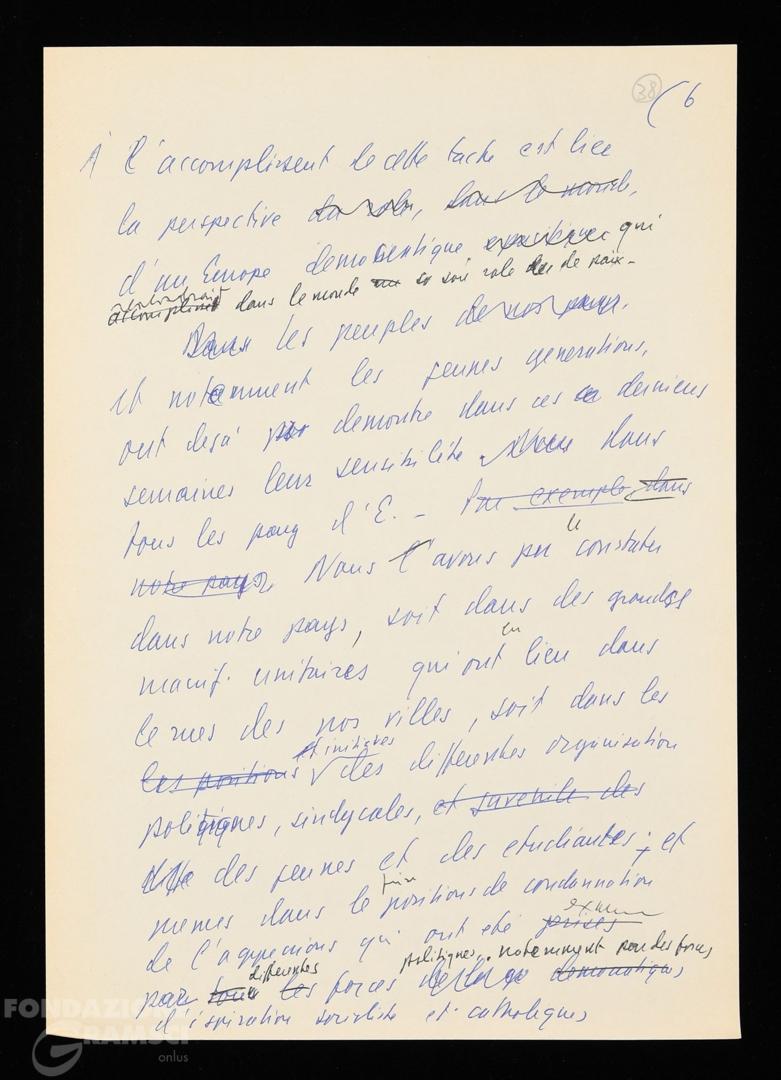 38
(6
A l'accomplissent de cette tache est liee
la perspective du role, dans le monde,
d'un Europe democratique qui
accomplirait dans le monde so soit role de de paix -
les peuples de nos pays.
et notemment les jeunes generations,
ont desà demontre dans ces derniers
semaines leur sensibilite. dans
tous les pays d'E. - Par exemple dans
notre pays Nous l'avons pu le constater
dans notre pays, soit dans des grandes
manif. unitaires qui ont eu lieu dans
le rues des nos villes, soit dans les
les positions et initiives des differentes organisation
politiques, sindycales, et juvenile des
des jeunes et des etudiants; et
memes dans le prise positions de condannation
de l'aggressions qui ont eté prises
par tous les differentes forces politiques, notemment par des forces democratiques
d'ispiration socialiste et catholiques
FONDAZIONE
GRAMSCI
onlus